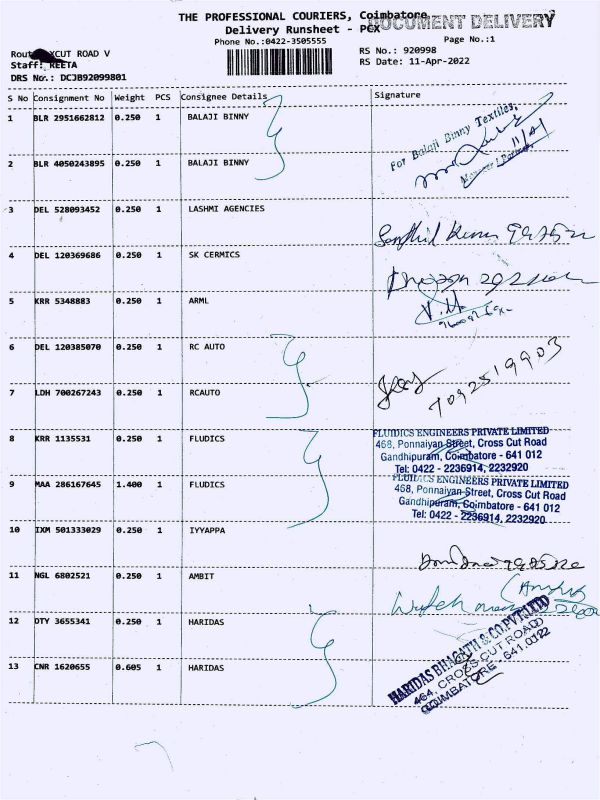 THE PROFESSIONAL COURIERS, Coimbatore
DOCUMENT DELIVERY
Delivery Runsheet - PCX
Phone No.:0422-3505555
Page No.:1
CUT ROAD V
RS No.: 920998
Staff: REETA
RS Date: 11-Apr-2022
DRS No.: DCJB92099801
S No Consignment No Weight PCS Consignee Details Signature
1 BLR 2951662812 0.250 1 BALAJI BINNY
For Balaji Binny Textiles,
2 BLR 4050243895 0.250 1 BALAJI BINNY
3 DEL 528093452 0.250 1 LASHMI AGENCIES
4 DEL 120369686 0.250 1 SK CERMICS
5 KRR 5348883 0.250 1 ARML
6 DEL 120385070 0.250 1 RC AUTO
7 LDH 700267243 0.250 1 RCAUTO
7092519903
8 KRR 1135531 0.250 1 FLUDICS
FLUIDICS ENGINEERS PRIVATE LIMITED
468, Ponnaiyan Street, Cross Cut Road
Gandhipuram, Coimbatore - 641 012
Tel: 0422 - 2236914, 2232920
9 MAA 286167645 1.400 1 FLUDICS
FLUIDICS ENGINEERS PRIVATE LIMITED
468, Ponnaiyan Street, Cross Cut Road
Gandhipuram, Coimbatore - 641 012
Tel: 0422 - 2236914, 2232920
10 IXM 501333029 0.250 1 IYYAPPA
11 NGL 6802521 0.250 1 AMBIT
12 DTY 3655341 0.250 1 HARIDAS
13 CNR 1620655 0.605 1 HARIDAS
HARIDAS BHAGATH & CO.PVT.LTD
464, CROSS CUT ROAD
COIMBATORE - 641 012